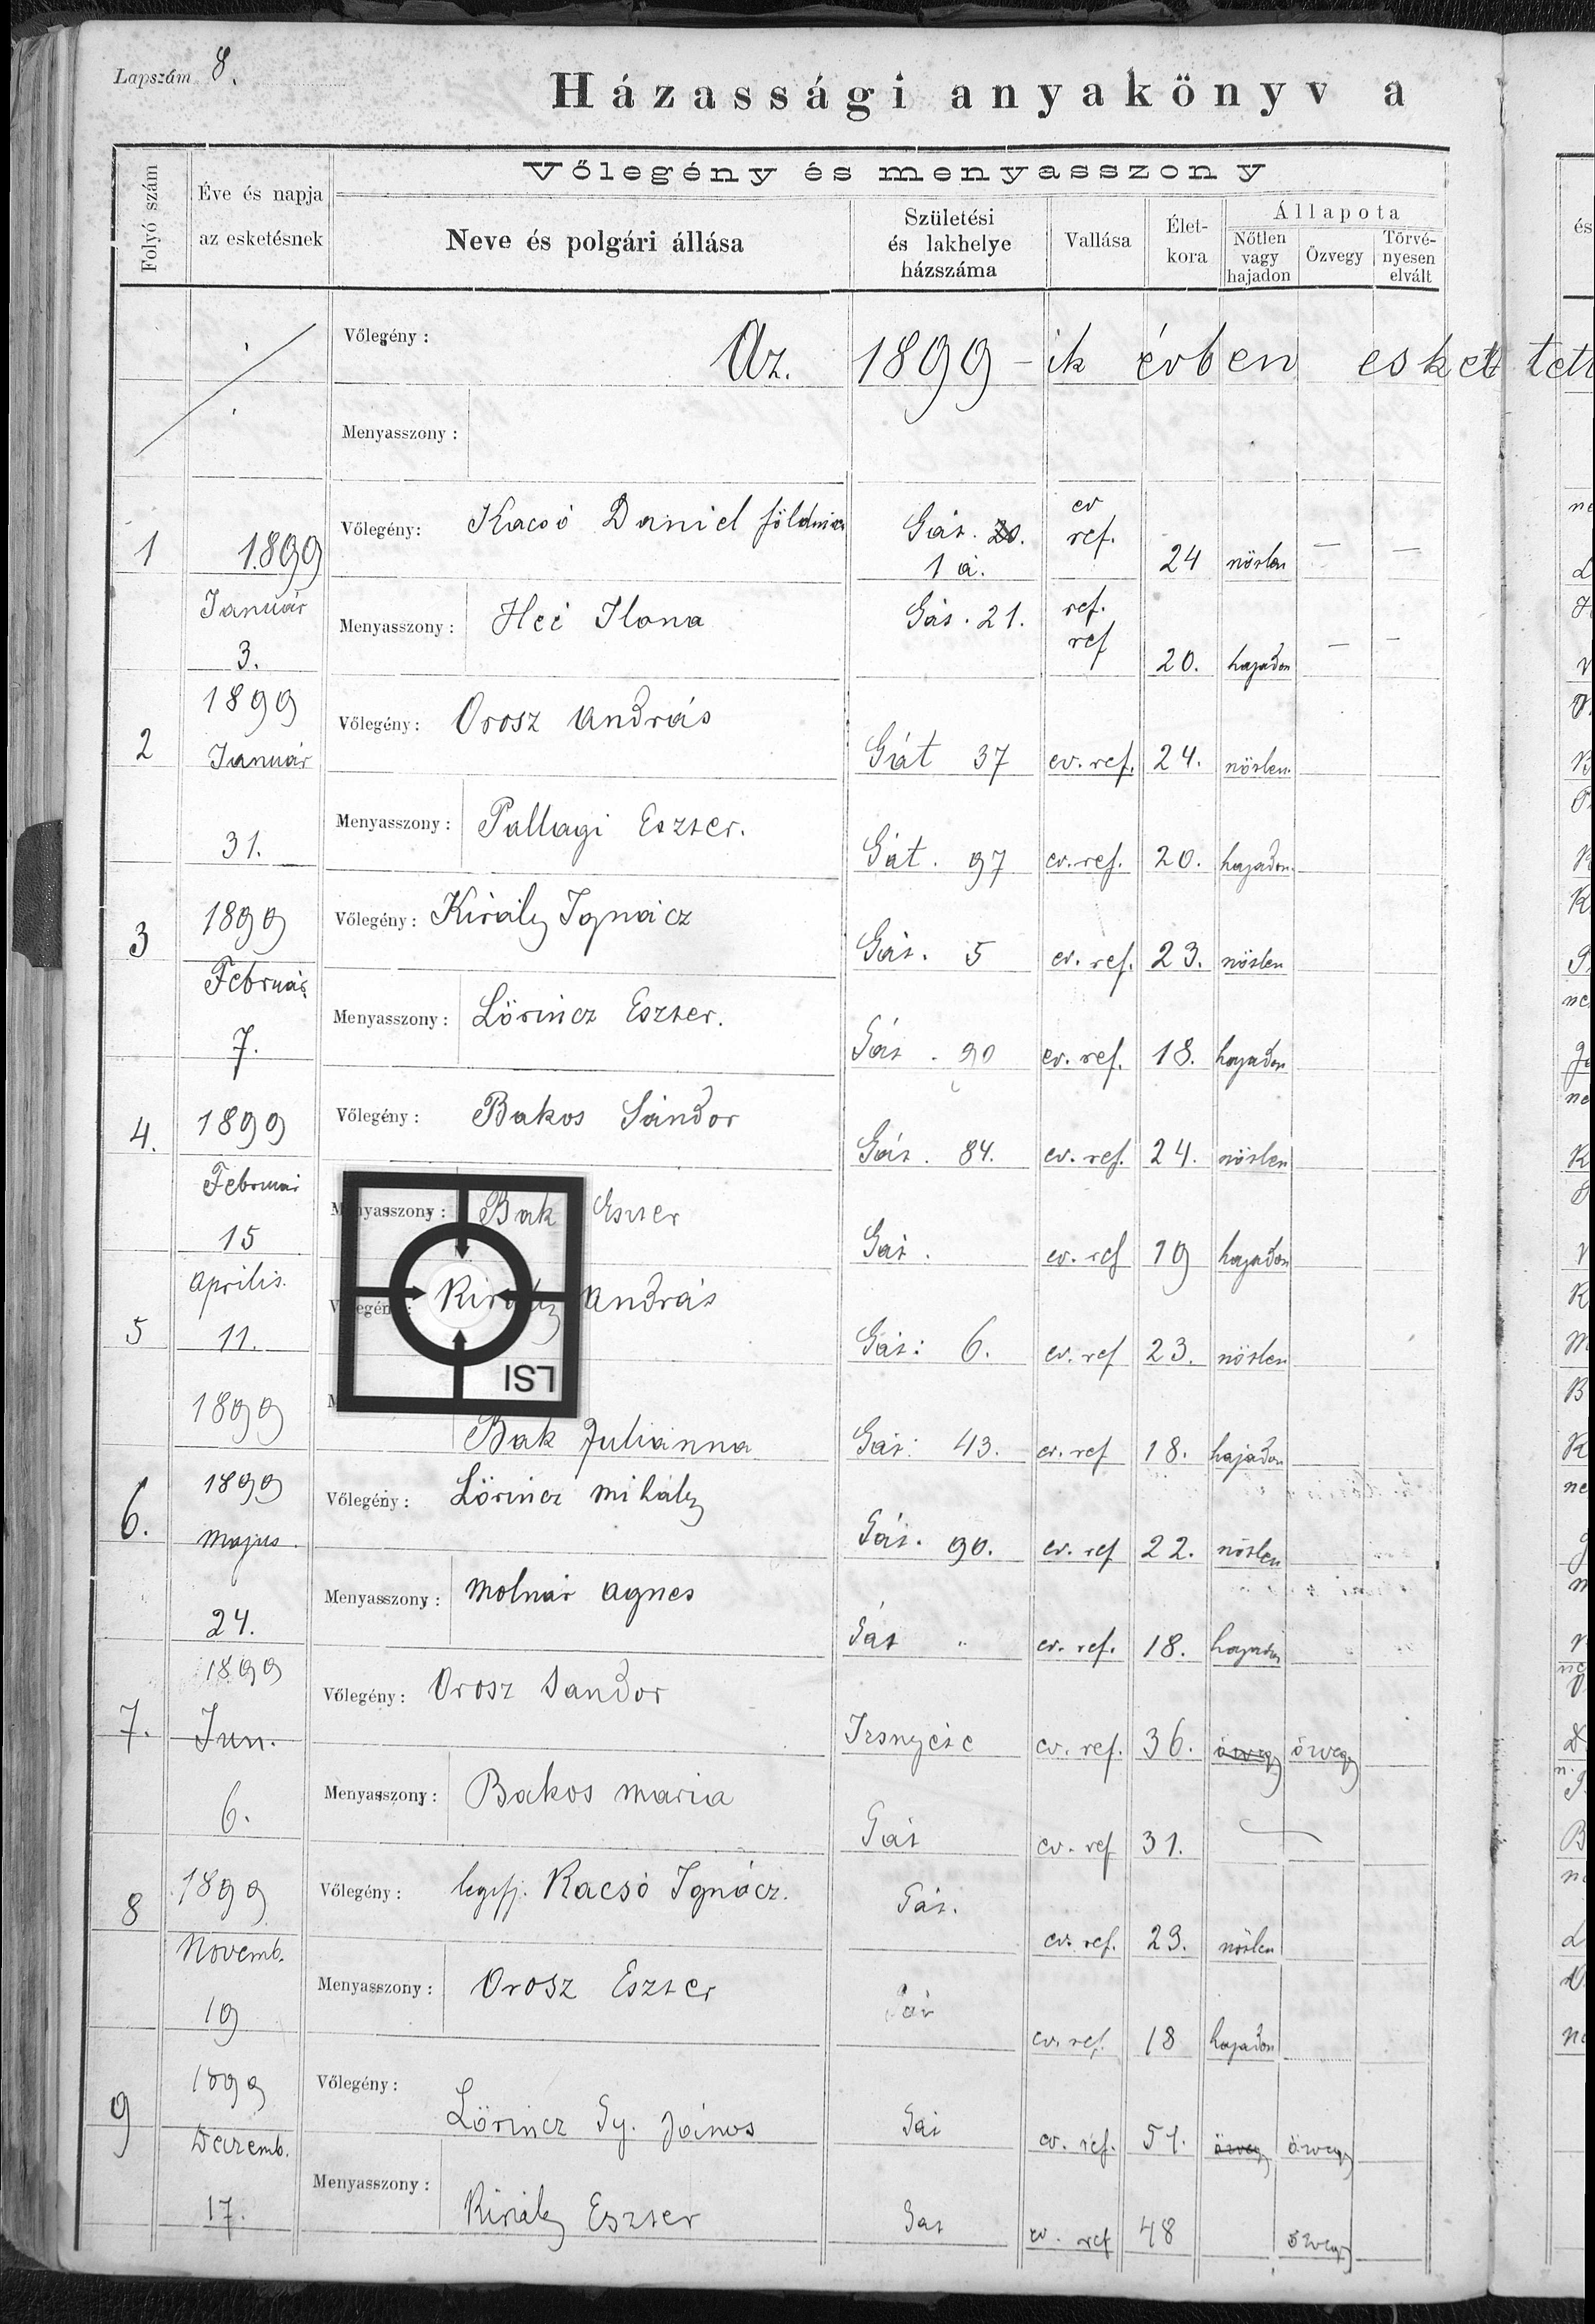 Lapszám 8.
Házassági anyakönyv a
Folyó szám
Éve és napja az esketésnek
Vőlegény és menyasszony
Neve és polgári állása
Születési és lakhelye házszáma
Vallása
Élet-kora
Állapota
Nőtlen vagy hajadon
Özvegy
Törvé-nyesen elvált
Vőlegény:
Az. 1899-ik évben eskettett
Menyasszony:
1 1899 Vőlegény: Kacsó Daniel Gát. 20. 1 a. ev ref. 24 nőtlen — —
Január 3. Menyasszony: Ilona Gát. 21. ref. ref 20. hajadon — —
2 1899 Január Vőlegény: Orosz András Gát 37 ev. ref. 24. nőtlen
31. Menyasszony: Pallagi Eszter. Gát. 97 ev. ref. 20. hajadon
3 1899 Február Vőlegény: Király Ignácz Gát. 5 ev. ref. 23. nőtlen
7. Menyasszony: Lőrincz Eszter. Gát. 90 ev. ref. 18. hajadon
4. 1899 Február Vőlegény: Bakos Sándor Gát. 84. ev. ref. 24. nőtlen
15 Menyasszony: Bak Eszter Gát. ev. ref 19 hajadon
5 April is. 11. Vőlegény: Király András Gát: 6. ev. ref 23. nőtlen
LSI
1899 Bak Juliánna Gát: 43. ev. ref 18. hajadon
6. 1899 Majus Vőlegény: Lörincz Mihály Gát. 90. ev. ref 22. nőtlen
24. Menyasszony: Molnár Agnes Gát " ev. ref. 18. hajadon
7. 1899 Jun. Vőlegény: Orosz Sandor ev. ref. 36. özvegy özvegy
6. Menyasszony: Bakos Maria Gát ev. ref 31.
8 1899 Novemb. Vőlegény: legifj. Kacsó Ignácz. Gát. ev. ref. 23. nőtlen
19 Menyasszony: Orosz Eszter Gát ev. ref. 18 hajadon
9 1899 Decemb. Vőlegény: Lörincz Gy. János Gát ev. ref. 51. özvegy özvegy
17. Menyasszony: Király Eszter Gat ev. ref 48 özvegy